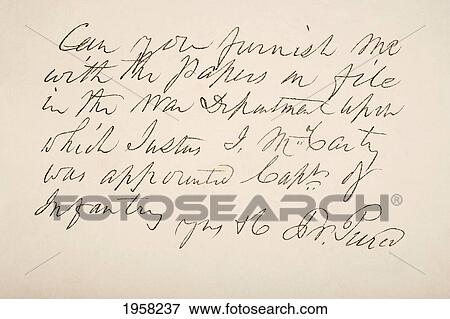 Can you furnish me
with the papers on file
in the War Department upon
which Justus I. McCarty
was appointed Capt. of
Infantry
yrs &c
FOTOSEARCH®
1958237 www.fotosearch.com